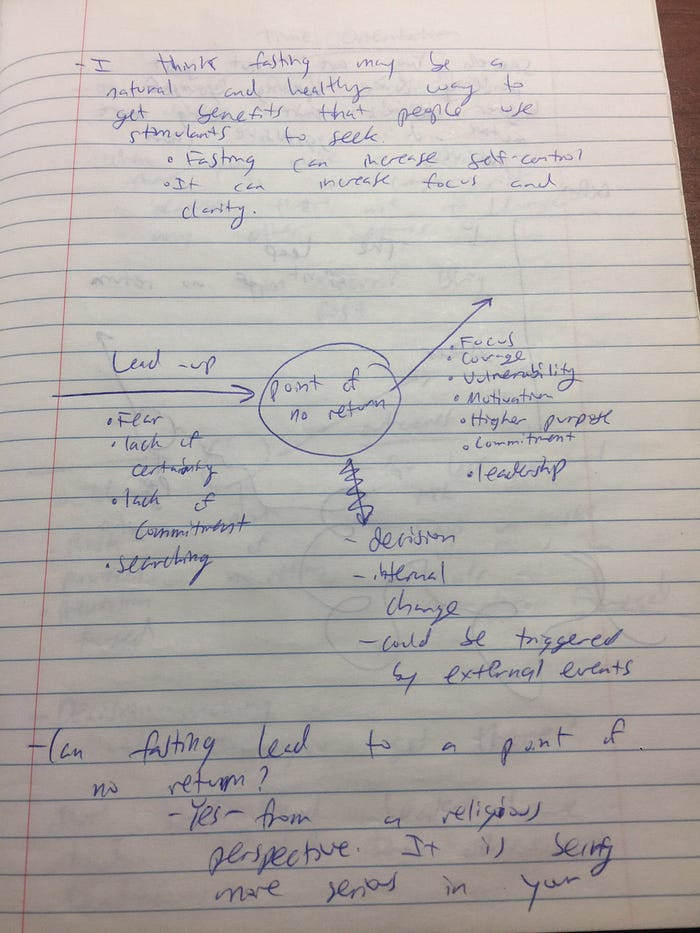 - I think fasting may be a
natural and healthy way to
get benefits that people use
stimulants to seek.
• Fasting can increase self-control
• It can increase focus and
clarity.
Lead-up
• Fear
• lack of
certainty
• lack of
commitment
• searching
point of
no return
• Focus
• Courage
• Vulnerability
• Motivation
• Higher purpose
• Commitment
• leadership
- decision
- internal
change
- could be triggered
by external events
- Can fasting lead to a point of
no return?
- Yes - from a religious
perspective. It is being
more serious in your